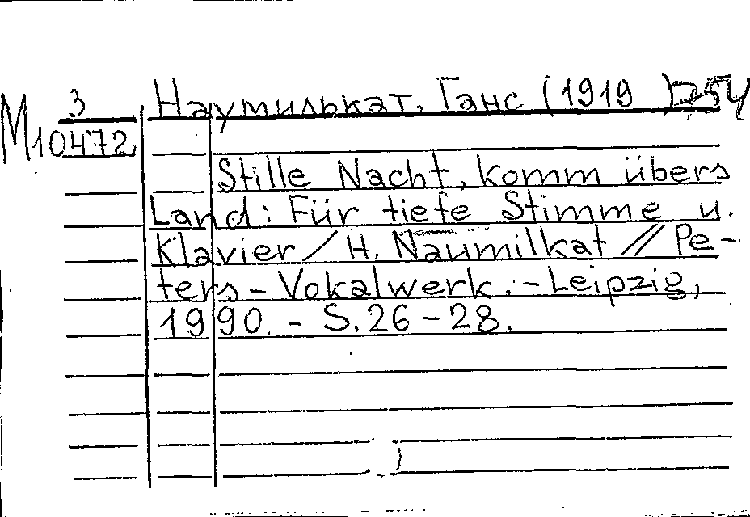 3 Наумилькат, Ганс (1919 ) 254
М10472
Stille Nacht, komm übers
Land: Für tiefe Stimme u.
Klavier / H. Naumilkat // Pe-
ters - Vokalwerk. - Leipzig,
1990. - S. 26 - 28.